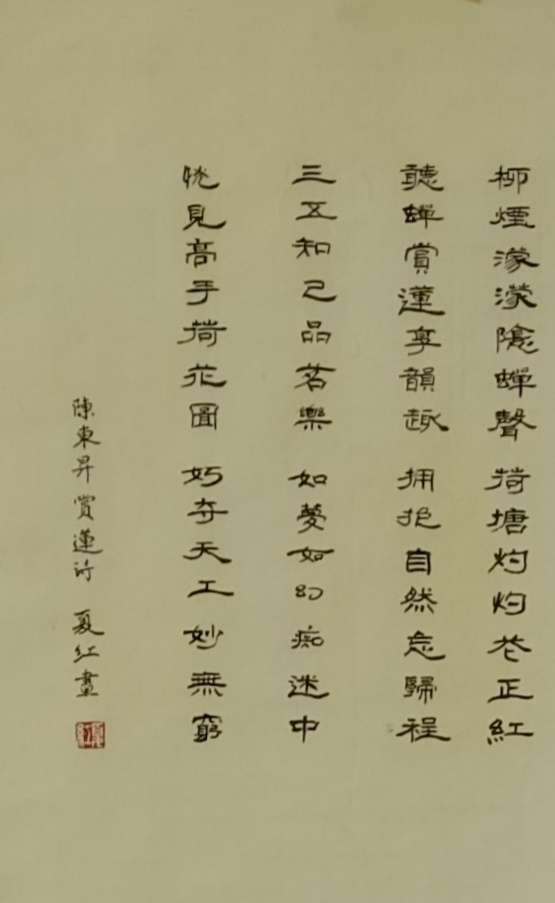 柳煙濛濛隱蟬聲 荷塘灼灼花正紅
聽蟬賞蓮享韻趣 擁抱自然忘歸程
三五知己品茗樂 如夢如幻痴迷中
恍見高手荷花圖 巧奪天工妙無窮
陳東昇賞蓮詩 夏紅畫